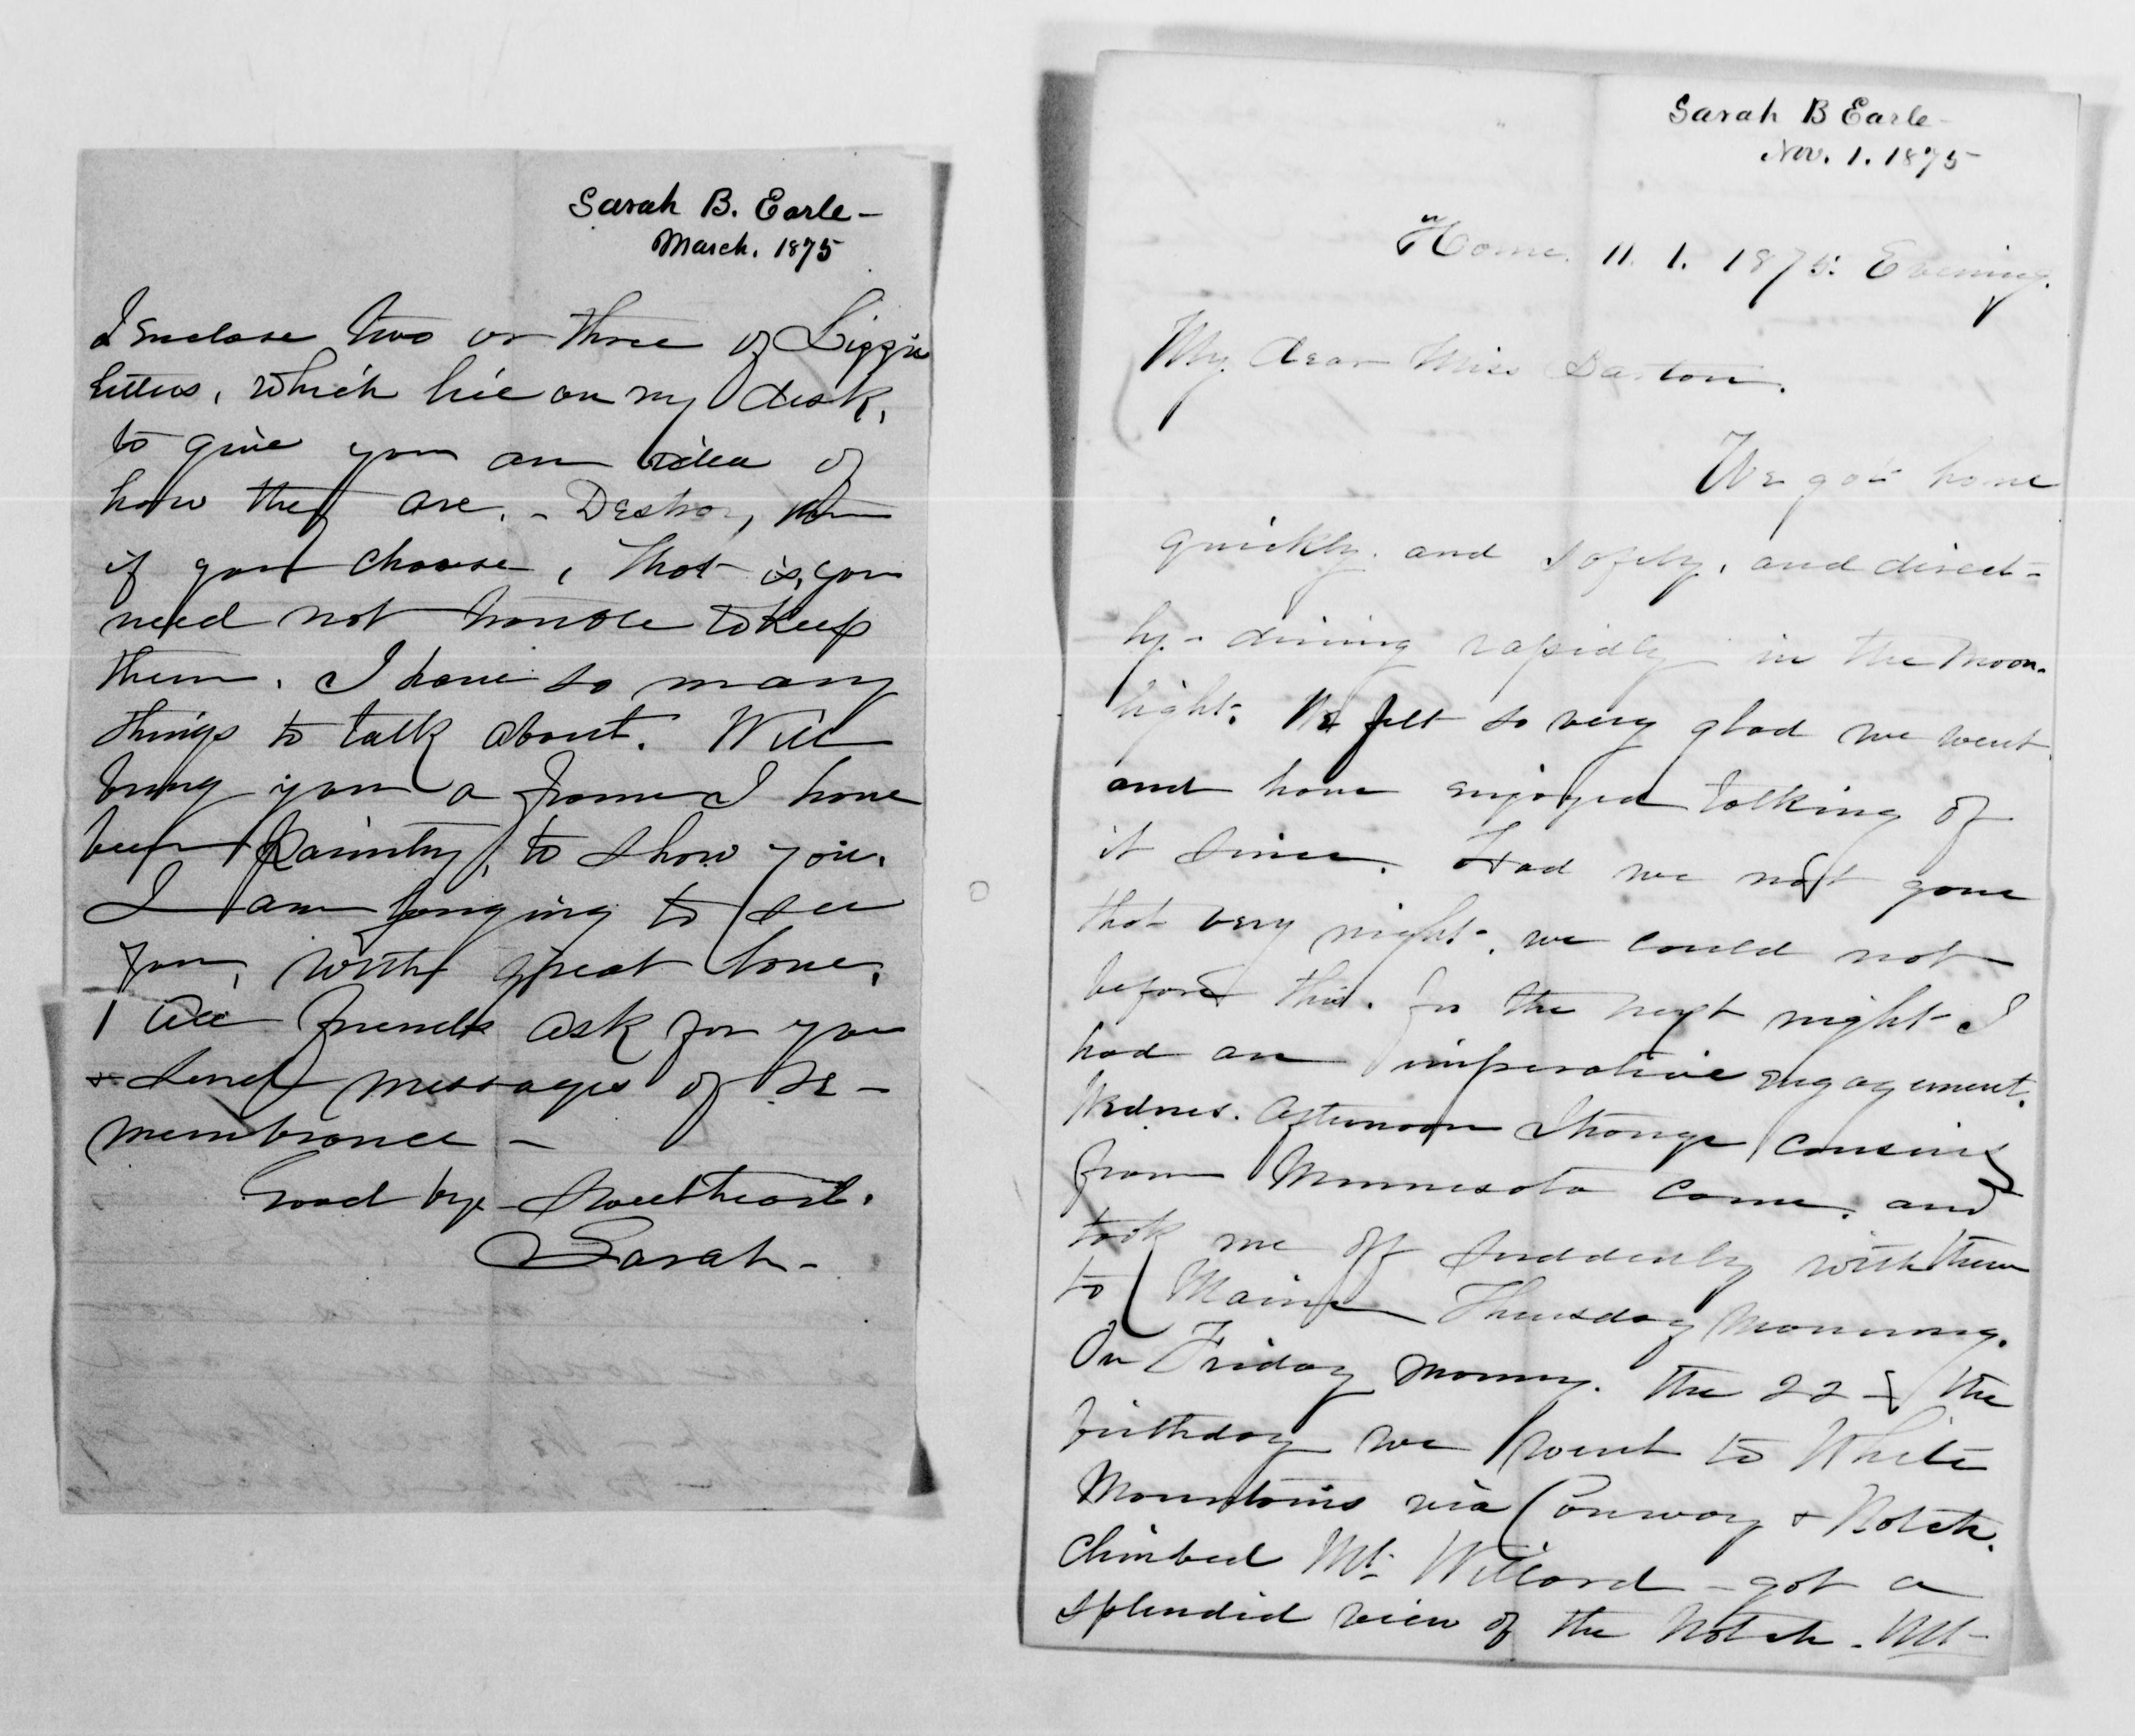 Sarah B. Earle -
March. 1875
I enclose two or three of Lizzie
letters, which lie on my desk,
to give you an idea of
how they are. - Destroy them
if you choose, that is, you
need not trouble to keep
them. I have so many
things to talk about. Will
bring you a frame I have
been painting, to show you.
I am longing to see
you, with great love,
All friends ask for you
& send messages of re-
membrance -
Good bye - Sweetheart.
Sarah -
Sarah B Earle -
Nov. 1. 1875
Home. 11. 1. 1875. Evening.
My dear Miss Barton.
We got home
quickly. and safely. and direct-
ly. - driving rapidly in the moon-
light. We felt so very glad we went
and have enjoyed talking of
it since. Had we not gone
that very night. we could not
before this. for the next night I
had an imperative engagement.
Wednes. afternoon strange cousins
from Minnesota came. and
took me off suddenly with them
to Maine Thursday morning.
On Friday morning. the 22d the
birthday we went to White
Mountains via Conway & Notch.
Climbed Mt. Willard - got a
splendid view of the Notch. Mt-